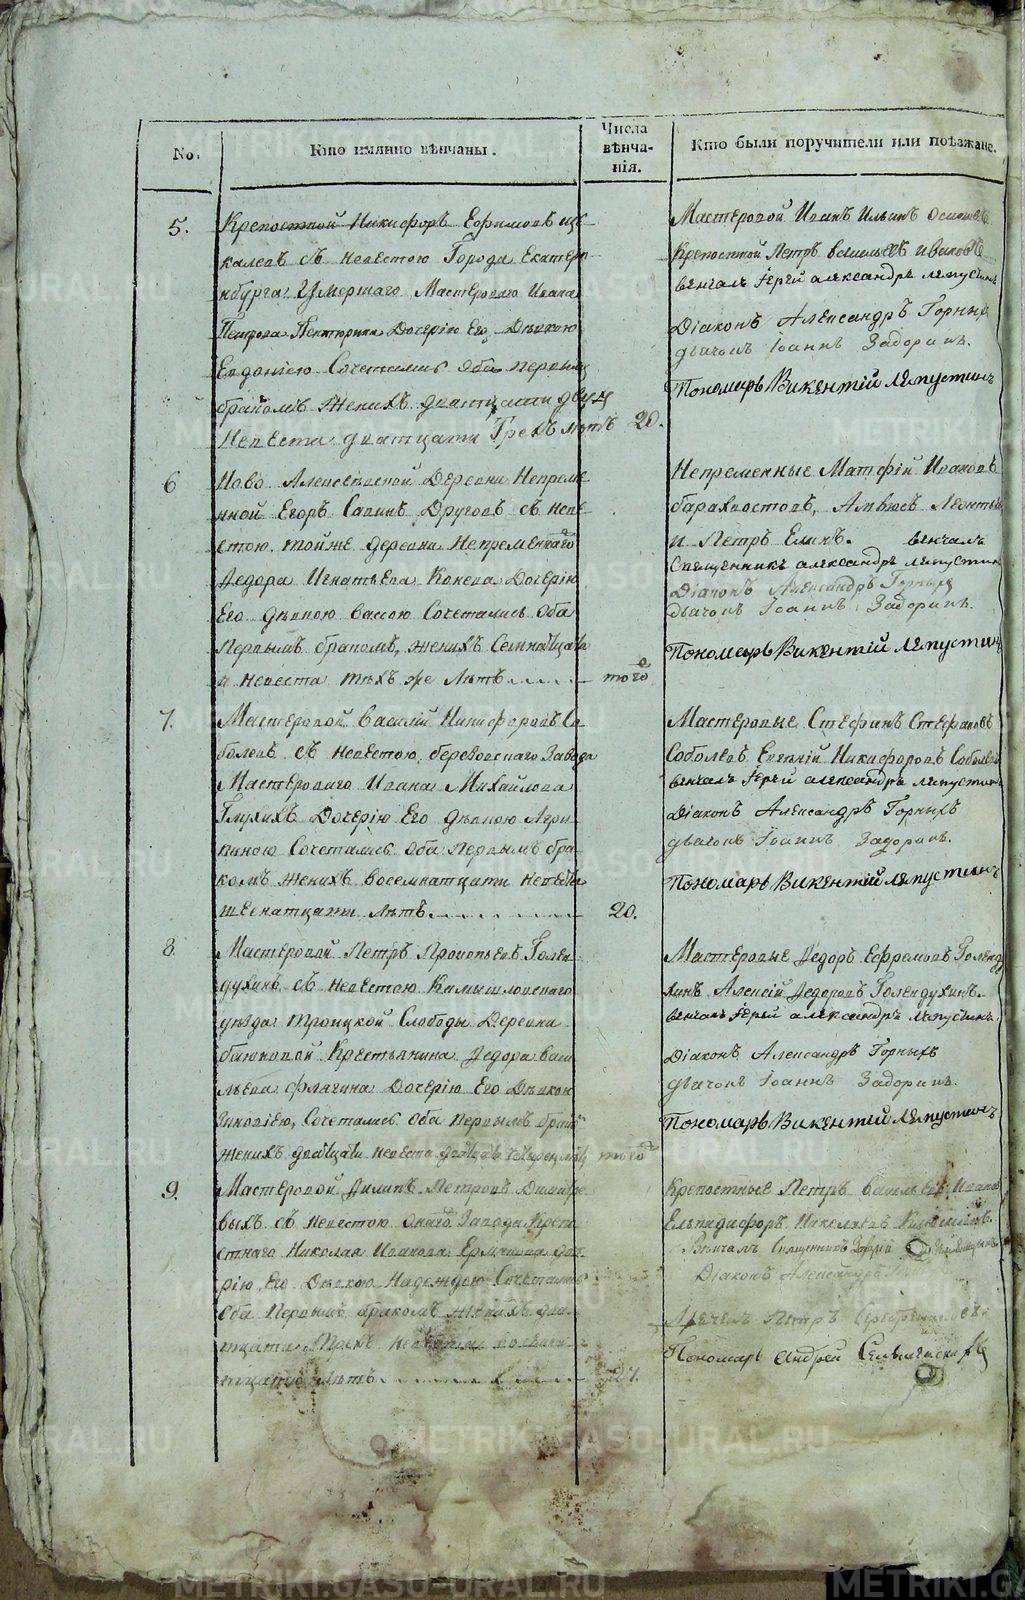 No.
Кто имянно вѣнчаны.
Числа
вѣнча-
нія.
Кто были поручители или поѣзжане.
5.
Крепостной Никифоръ Ефимовъ
съ невестою Города Екатери
нбурга Умершаго Мастероваго Ивана
Петрова Дочерію Его Девкою
Евдокіею Сочетались Оба первым
бракомъ Женихъ дватцати двухъ
Невеста дватцати Трехъ летъ
20.
Мастеровой Иванъ Ильинъ
Крепостной Петръ Васильевъ Ивановъ
венчалъ Іерей александръ ляпустинъ
Діаконъ Александръ Горныхъ
дьячокъ Іоаннъ Задоринъ.
Пономарь Викентій Ляпустинъ
6
Ново Алексѣевской Деревни Непреме
нной Егоръ Савинъ Друговъ съ неве
стою тойже деревни Непременнаго
Федора Игнатьева Конева Дочерію
Его девкою Вассою Сочетались Оба
Первымъ бракомъ, жених Семнатцати
и невеста техъ же летъ
того
Непременные Матфій Ивановъ
барахвостовъ, Амвросъ Леонтьев
и Петръ Елинъ. венчалъ
Священникъ александръ ляпустин
Діаконъ Александръ Горныхъ
дьячокъ Іоаннъ Задоринъ.
Пономарь Викентій Ляпустинъ
7.
Мастеровой Василій Никифоровъ Со
болевъ съ невестою березовскаго Завода
Мастероваго Ивана Михайлова
Глухихъ Дочерію Его девкою Агри
пиною Сочетались Оба Первымъ бра
комъ жених восемнатцати невеста
шеснатцати летъ
20.
Мастеровые Стефанъ Стефановъ
Соболевъ Евгеній Никифоровъ Соболевъ
венчалъ Іерей александръ ляпустинъ
Діаконъ Александръ Горныхъ
дьячокъ Іоаннъ Задоринъ.
Пономарь Викентій Ляпустинъ
8.
Мастеровой Петръ Прокопьевъ Голен
духинъ съ невестою Камышловскаго
уезда Троицкой Слободы Деревни
баюковой Крестьянина Федора Васи
льева Флягина Дочерію Его Девкою
Зиновіею, Сочетались Оба первымъ бра
женихъ двадцати невеста двадцати четырехъ летъ
того
Мастеровые Федоръ Ефремовъ Голенду
хинъ Алексій Федоровъ Голендухинъ.
венчалъ Іерей александръ ляпустинъ.
Діаконъ Александръ Горныхъ
дьячокъ Іоаннъ Задоринъ.
Пономарь Викентій Ляпустинъ
9.
Мастеровой Филипъ Петровъ Дмитре
выхъ съ невестою Онаго Завода Крепо
стнаго Николая Иванова Ермакова доч
рію Его Девкою Надеждою Сочетались
Оба Первымъ бракомъ женихъ два
тцати Трехъ невеста восемна
тцати летъ
27.
Крепостные Петръ Васильевъ Ивано
Елпидифоръ Николаевъ
Венчалъ Священникъ
Діаконъ Александръ
Петръ
Пономарь Андрей
METRIKI.GASO-URAL.RU